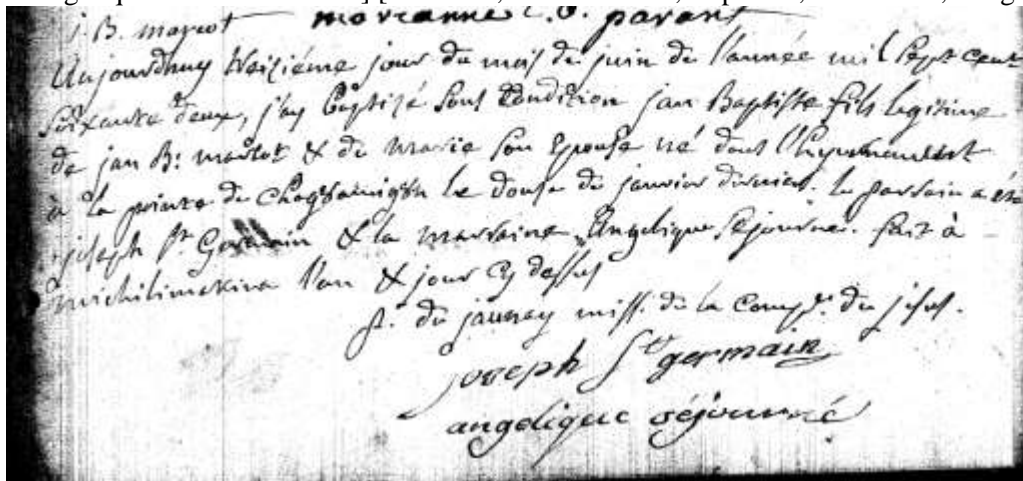 j. B. marcot marianne C. O. parant
Aujourdhuy treiziéme jour du mois de juin de l'année mil sept cent
soixante deux, j'ay baptizé sous condition jan Baptiste fils legitime
de jan B: martot & de marie son Epouse né dans l'hyvernement
à la pointe de le douse de janvier dernier. le parrain a été
joseph St. Germain & la marraine Angelique sejourné. fait à
michilimakina l'an & jour cy dessus
P. du jaunay miss. de la Comp. de jesus.
joseph St germain
angelique séjourné